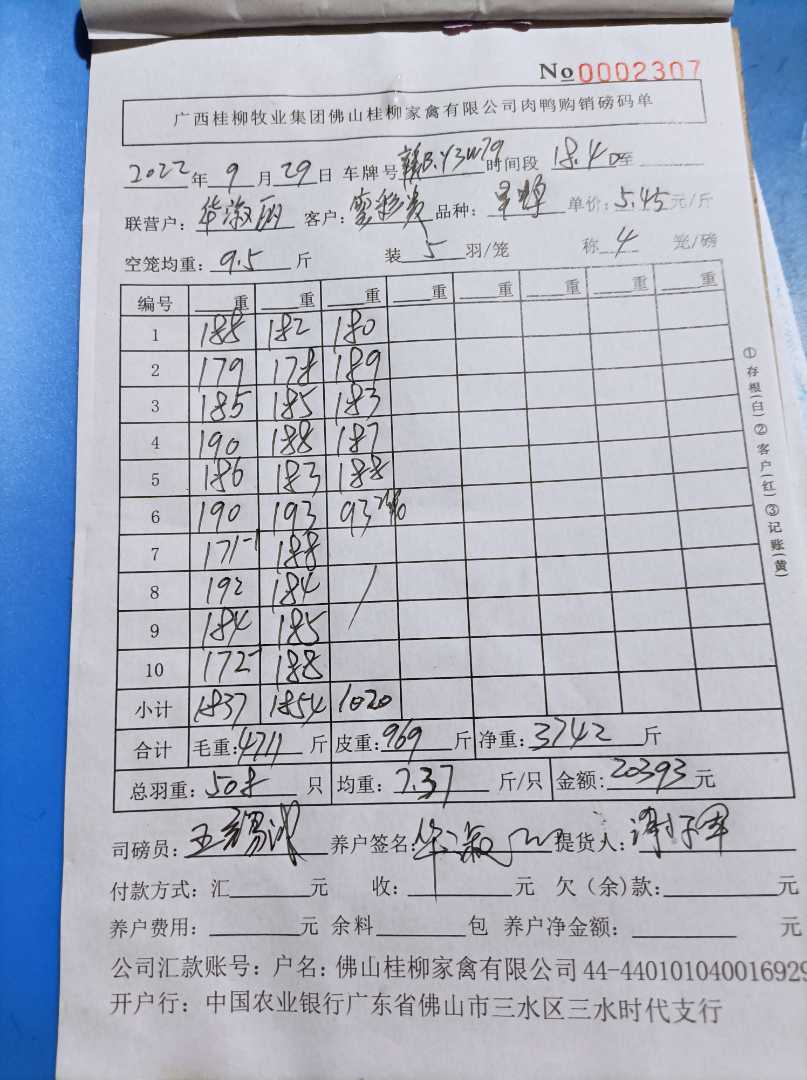 No 0002307
广西桂柳牧业集团佛山桂柳家禽有限公司肉鸭购销磅码单
2022年9月29日 车牌号 时间段 18.40至
联营户: 华淑 客户: 品种: 单价: 5.45元/斤
空笼均重: 9.5 斤 装 5 羽/笼 称 4 笼/磅
编号 重 重 重 重 重 重 重 重
1 188 182 180
2 179 178 189
3 185 185 183
4 190 188 187
5 186 183 188
6 190 193 93
7 171 188
8 192 184
9 184 185
10 172 188
小计 1837 1854 1020
合计 毛重: 4711 斤 皮重: 969 斤 净重: 3742 斤
总羽重: 508 只 均重: 7.37 斤/只 金额: 20393 元
司磅员: 养户签名: 提货人:
付款方式: 汇 元 收: 元 欠(余)款: 元
养户费用: 元 余料 包 养户净金额: 元
公司汇款账号: 户名: 佛山桂柳家禽有限公司 44-440101040016929
开户行: 中国农业银行广东省佛山市三水区三水时代支行
①存根(白)②客户(红)③记账(黄)